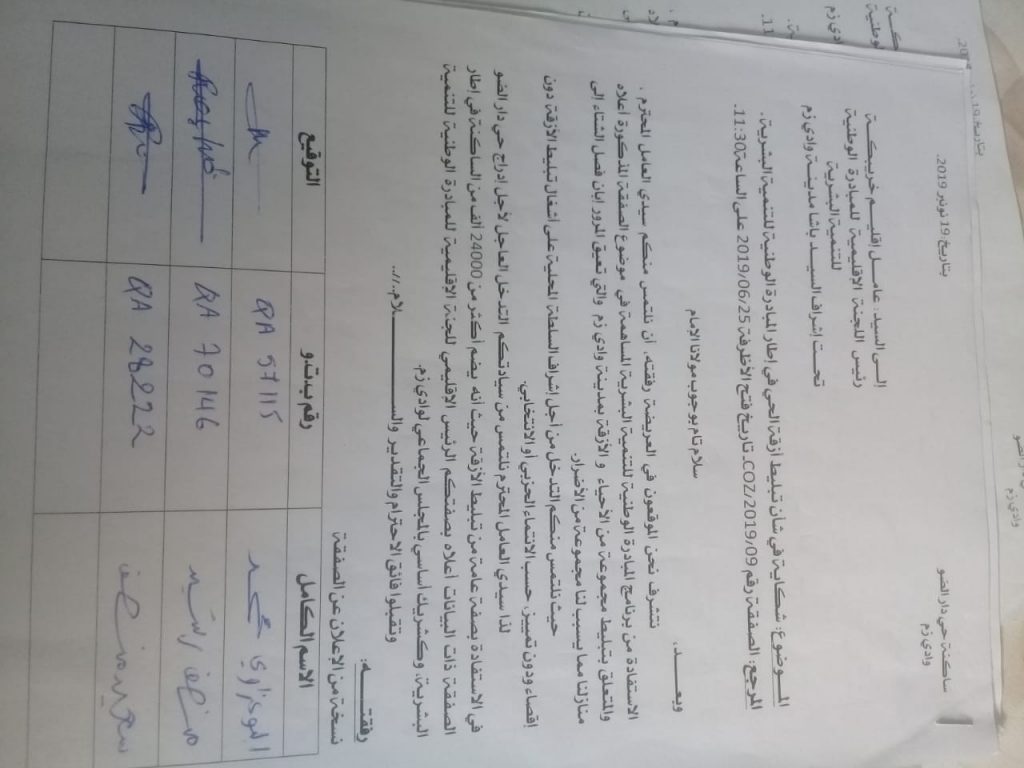 ساكنة حي دار الضو
وادي زم
بتاريخ: 19 نونبر 2019.
إلى السيد: عامل إقليم خريبكة
رئيس اللجنة الإقليمية للمبادرة الوطنية
للتنمية البشرية
تحت إشراف السيد باشا مدينة وادي زم
الموضوع: شكاية في شأن تبليط أزقة الحي في إطار المبادرة الوطنية للتنمية البشرية.
المرجع: الصفقة رقم COZ/2019/09، تاريخ فتح الأظرفة 2019/06/25 على الساعة 11:30.
سلام تام بوجود مولانا الإمام
وبعد،
نتشرف نحن الموقعون في العريضة رفقته، أن نلتمس منكم سيدي العامل المحترم،
الاستفادة من برنامج المبادرة الوطنية للتنمية البشرية المساهمة في موضوع الصفقة المذكورة أعلاه
والمتعلق بتبليط مجموعة من الأحياء والأزقة بمدينة وادي زم والتي تعيق المرور إبان فصل الشتاء إلى
منازلنا مما يسبب لنا مجموعة من الأضرار.
حيث نلتمس منكم التدخل من أجل إشراف السلطة المحلية على أشغال تبليط الأزقة دون
إقصاء ودون تمييز، حسب الانتماء الحزبي أو الانتخابي.
لذا سيدي العامل المحترم نلتمس من سيادتكم التدخل العاجل لأجل إدراج حي دار الضو
في الاستفادة بصفة عامة من تبليط الأزقة حيث أنه يضم أكثر من 24000 ألف من الساكنة في إطار
الصفقة ذات البيانات أعلاه بصفتكم الرئيس الإقليمي للجنة الإقليمية للمبادرة الوطنية للتنمية
البشرية، وكشريك أساسي بالمجلس الجماعي لوادي زم.
وتقبلوا فائق الاحترام والتقدير والسلام./.
رفقته:
نسخة من الإعلان عن الصفقة
الاسم الكامل رقم ب ت و التوقيع
محمد QA 57115
منصف رشيد QA 70146
سعيد منصف QA 28222